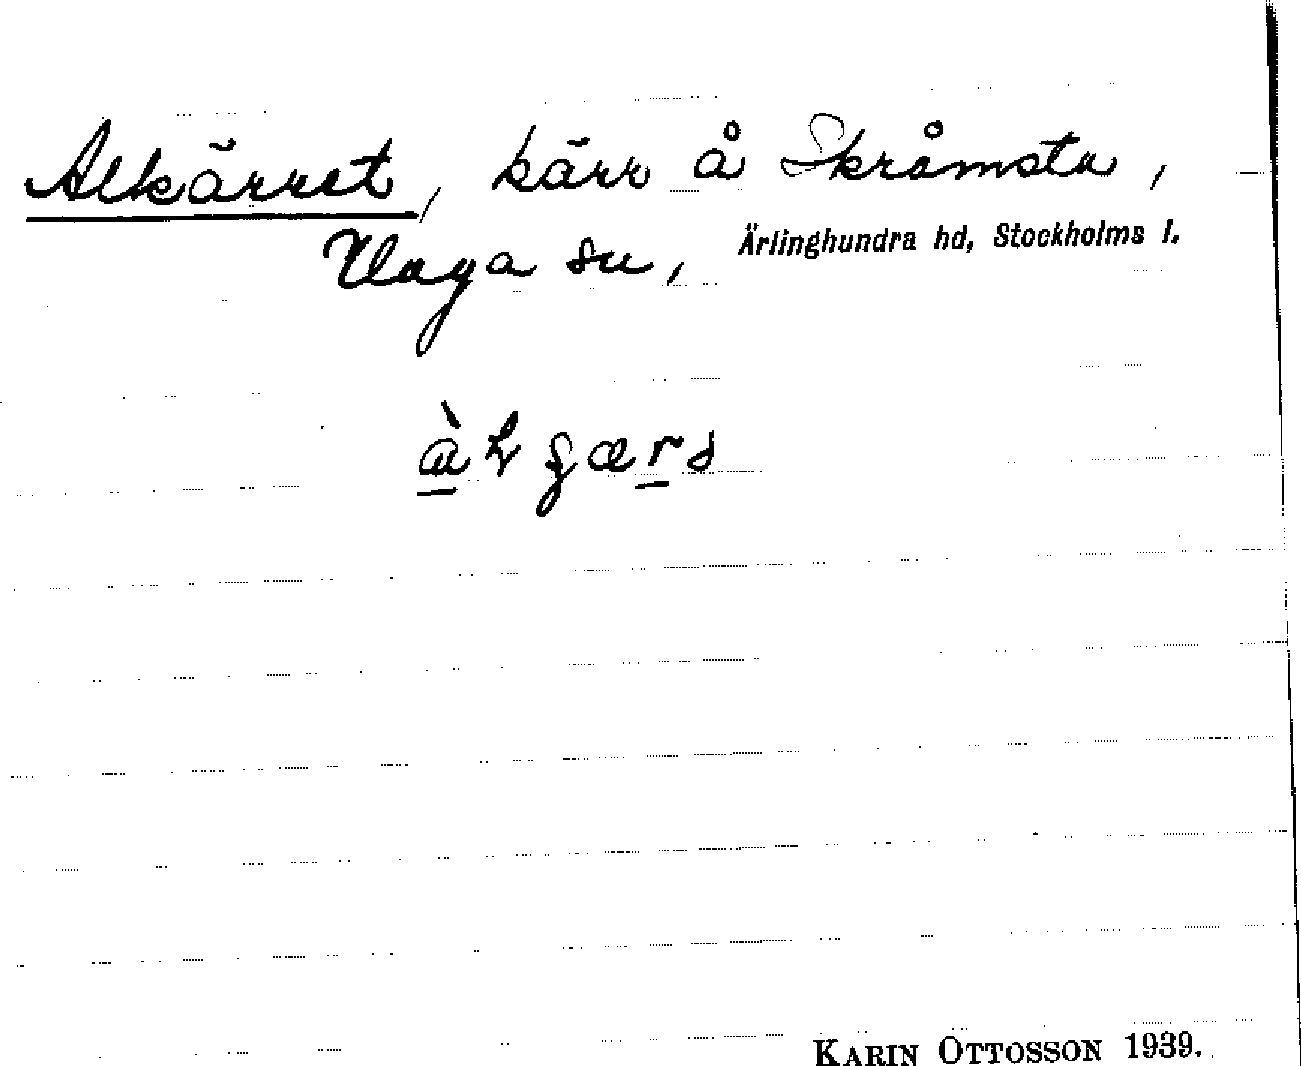 Alkärret, kärr å Skråmsta,
Haga sn, Ärlinghundra hd, Stockholms l.
KARIN OTTOSSON 1939.